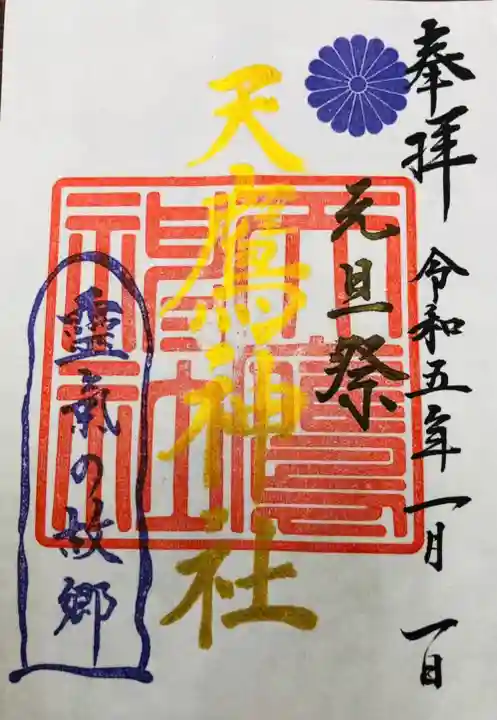 奉拝 令和五年一月一日
元旦祭
天鷹神社
霊氣の故郷
天鷹神社